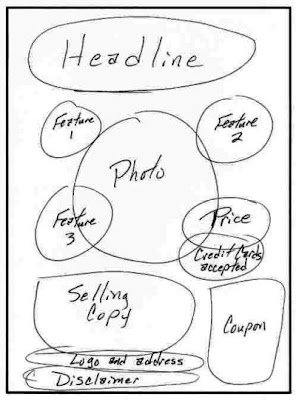 Headline
Feature
1
Feature
2
Photo
Feature
3
Price
Credit Cards
accepted
Selling
Copy
Coupon
Logo and address
Disclaimer